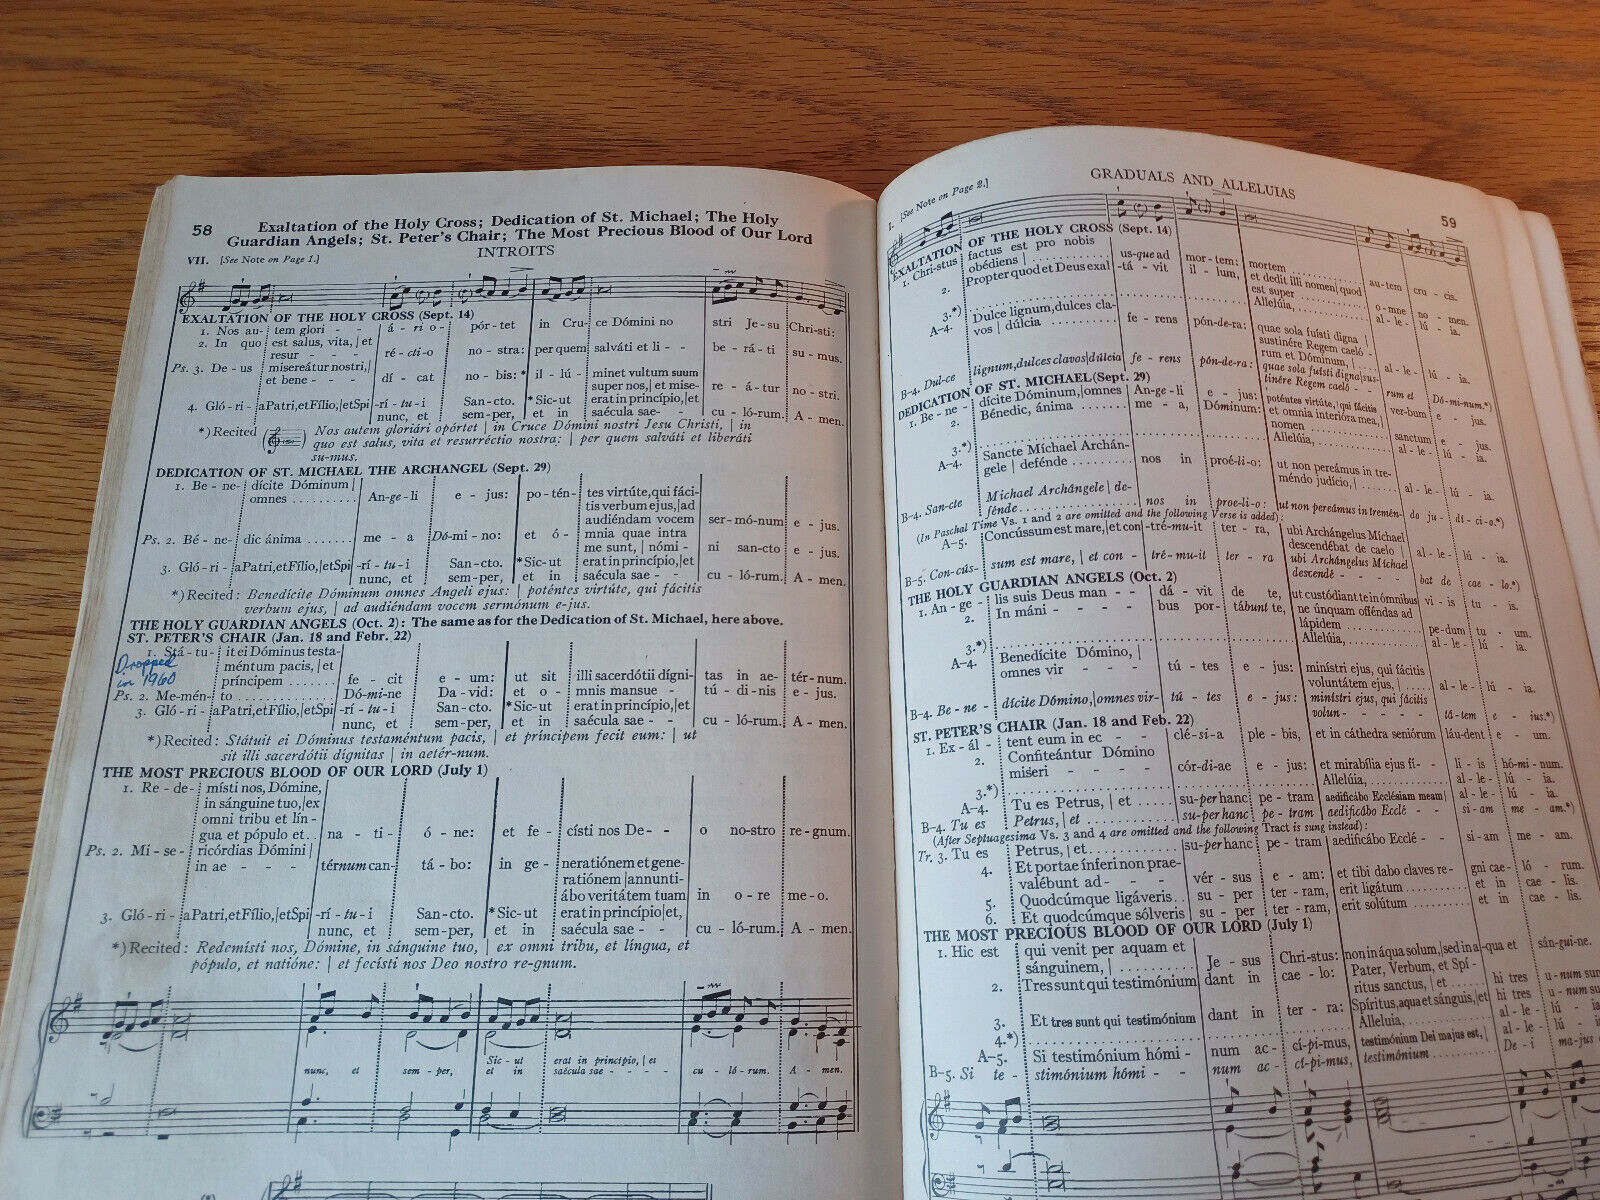 58 Exaltation of the Holy Cross; Dedication of St. Michael; The Holy
Guardian Angels; St. Peter's Chair; The Most Precious Blood of Our Lord
VII. [See Note on Page 1.] INTROITS
EXALTATION OF THE HOLY CROSS (Sept. 14)
1. Nos au- tem glori - - á - ri o - pór - tet in Cru - ce Dómini no stri Je - su Chri - sti:
2. In quo est salus, vita, | et
resur - - - ré - cti - o no - stra: per quem salváti et li - - be - rá - ti su - mus.
Ps. 3. De - us misereátur nostri, |
et bene - - - dí - cat no - bis: * il - lú - minet vultum suum
super nos, | et mise re - á - tur no - stri.
4. Gló - ri - a Patri, et Fílio, | et Spi - rí - tu - i Sancto. * Sic - ut erat in princípio, | et
nunc, et sem - per, et in saécula sae - - cu - ló - rum. A - men.
*) Recited Nos autem gloriári opórtet | in Cruce Dómini nostri Jesu Christi, | in
quo est salus, vita et resurréctio nostra: | per quem salváti et liberáti
su-mus.
DEDICATION OF ST. MICHAEL THE ARCHANGEL (Sept. 29)
1. Be - ne- dícite Dóminum |
omnes .......... An - ge - li e - jus: po - tén - tes virtúte, qui fáci -
tis verbum ejus, | ad
audiéndam vocem ser - mó - num e - jus.
Ps. 2. Bé - ne- dic ánima ....... me - a Dó - mi - no: et ó - mnia quae intra
me sunt, | nómi - ni san - cto e - jus.
3. Gló - ri - a Patri, et Fílio, | et Spi - rí - tu - i Sancto. * Sic - ut erat in princípio, | et
nunc, et sem - per, et in saécula sae - - cu - ló - rum. A - men.
*) Recited: Benedícite Dóminum omnes Angeli ejus: | poténtes virtúte, qui fácitis
verbum ejus, | ad audiéndam vocem sermónum e-jus.
THE HOLY GUARDIAN ANGELS (Oct. 2): The same as for the Dedication of St. Michael, here above.
ST. PETER'S CHAIR (Jan. 18 and Febr. 22)
Dropped
in 1960
1. Stá - tu- it ei Dóminus testa-
méntum pacis, | et
príncipem ..... fe - cit e - um: ut sit illi sacerdótii dígni - tas in ae - térnum.
Ps. 2. Memén - to .......... Dó - mi - ne Da - vid: et o - mnis mansue - tú - di - nis e - jus.
3. Gló - ri - a Patri, et Fílio, | et Spi - rí - tu - i Sancto. * Sic - ut erat in princípio, | et
nunc, et sem - per, et in saécula sae - - cu - ló - rum. A - men.
*) Recited: Státuit ei Dóminus testaméntum pacis, | et príncipem fecit eum: | ut
sit illi sacerdótii dígnitas | in aetér-num.
THE MOST PRECIOUS BLOOD OF OUR LORD (July 1)
1. Re - de- místi nos, Dómine,
in sánguine tuo, | ex
omni tribu et lín-
gua et pópulo et .. na - ti - ó - ne: et fe - císti nos De - - o nostro re - gnum.
Ps. 2. Mi - se - ricórdias Dómini |
in ae - - - térnum can - tá - bo: in ge - neratiónem et gene-
ratiónem | annunti-
ábo veritátem tuam in o - re me - o.
3. Gló - ri - a Patri, et Fílio, | et Spi - rí - tu - i Sancto. * Sic - ut erat in princípio | et,
nunc, et sem - per, et in saécula sae - - cu - ló - rum. A - men.
*) Recited: Redemísti nos, Dómine, in sánguine tuo, | ex omni tribu, et língua, et
pópulo, et natióne: | et fecísti nos Deo nostro re-gnum.
Sic - ut erat in princípio, | et
nunc, et sem - per, et in saécula sae - - - - cu - ló - rum. A - men.
GRADUALS AND ALLELUIAS
I. [See Note on Page 2.] 59
EXALTATION OF THE HOLY CROSS (Sept. 14)
1. Chri - stus factus est pro nobis
obédiens | us - que ad mor - tem: mortem .......... au - tem cru - cis.
2. Propter quod et Deus exal - tá - vit il - lum, et dedit illi nomen | quod
est super ....... o - mne no - men.
3.*) Allelúia, ....... al - le - lú - ia.
A-4. Dulce lignum, dulces cla-
vos | dúlcia ......... fe - rens pón - de - ra: quae sola fuísti digna |
sustinére Regem caeló -
rum et Dóminum, | al - le - lú - ia.
B-4. Dul - ce lignum, dulces clavos | dúlcia fe - rens pón - de - ra: quae sola fuísti digna | sus-
tinére Regem caeló - rum et Dó - mi - num.*)
DEDICATION OF ST. MICHAEL (Sept. 29)
1. Be - ne - dícite Dóminum, | omnes An - ge - li e - jus: poténtes virtúte, qui fácitis ver - bum e - jus.
2. Bénedic, ánima ...... me - a, Dóminum: et omnia interióra mea, |
nomen ....... sanctum e - jus.
3.*) Allelúia, ....... al - le - lú - ia.
A-4. Sancte Míchael Archán-
gele | defénde ........ nos in proé - li - o: ut non pereámus in tre-
méndo judício, | .... al - le - lú - ia.
B-4. San - cte Michael Archángele | de-
fénde ........ nos in proe - li - o: ut non pereámus in tremén - do ju - dí - ci - o.*)
(In Paschal Time Vs. 1 and 2 are omitted and the following Verse is added):
A-5. Concússum est mare, | et con - tré - mu - it ter - ra, ubi Archángelus Míchael
descendébat de caelo | al - le - lú - ia.
B-5. Con - cús - sum est mare, | et con - tré - mu - it ter - ra ubi Archángelus Míchael
descendé - - - bat de cae - lo.*)
THE HOLY GUARDIAN ANGELS (Oct. 2)
1. An - ge - lis suis Deus man - - - dá - vit de te, ut custódiant te in ómnibus vi - is tu - is.
2. In máni - - - - bus por - tábunt te, ne únquam offéndas ad
lápidem ....... pe - dum tu - um.
3.*) Allelúia, ....... al - le - lú - ia.
A-4. Benedícite Dómino, |
omnes vir - - - tú - tes e - jus: minístri ejus, qui fácitis
voluntátem ejus, | .... al - le - lú - ia.
B-4. Be - ne - dícite Dómino, | omnes vir - tú - tes e - jus: minístri ejus, qui fácitis
volun - - - - - tá - tem e - ius.*)
ST. PETER'S CHAIR (Jan. 18 and Feb. 22)
1. Ex - ál - tent eum in ec - - clé - si - a ple - bis, et in cáthedra seniórum láu - dent e - um.
2. Confiteántur Dómino
miseri - - - - cór - di - ae e - jus: et mirabília ejus fí - - li - is hó - mi - num.
3.*) Allelúia, ....... al - le - lú - ia.
A-4. Tu es Petrus, | et ...... su - per hanc pe - tram aedificábo Ecclésiam meam | al - le - lú - ia.
B-4. Tu es Petrus, | et ........ su - per hanc pe - tram aedificábo Ecclé si - am me - am.*)
(After Septuagesima Vs. 3 and 4 are omitted and the following Tract is sung instead):
Tr. 3. Tu es Petrus, | et .......... su - per hanc pe - tram aedificábo Ecclé - - si - am me - am.
4. Et portae ínferi non prae-
valébunt ad - - - vér - sus e - am: et tibi dabo claves re - gni cae - ló - rum.
5. Quodcúmque ligáveris .. su - per ter - ram, erit ligátum ...... et in cae - lis.
6. Et quodcúmque sólveris su - per ter - ram, erit solútum ...... et in cae - lis.
THE MOST PRECIOUS BLOOD OF OUR LORD (July 1)
1. Hic est qui venit per aquam et
sánguinem, | .......... Je - sus Chri - stus: non in áqua solum, | sed in a - qua et sán - gui - ne.
2. Tres sunt qui testimónium dant in cae - lo: Pater, Verbum, et Spí-
ritus sanctus, | et .... hi tres u - num sun
3. Et tres sunt qui testimónium dant in ter - ra: Spíritus, aqua et sánguis, | et hi tres u - num su
4.*) Alleluia, ....... al - le - lú - ia
A-5. Si testimónium hómi - num ac - cí - pi - mus, testimónium Dei majus est, | al - le - lú - ia
B-5. Si te - stimónium hómi - - num ac - cí - pi - mus, testimónium ...... De - i ma - jus